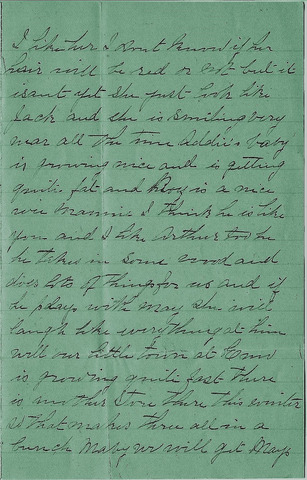 I like her I dont know if her
hair will be red or not but it
isant yet she just look like
Jack and she is smiling very
near all the time Addie's baby
is growing nice and is getting
quite fat and is a nice
one Mammie I think he is like
you and I like Arthur too he
he takes in some wood and
does lots of things for us and if
he plays with may she will
laugh like everything at him
well our little town at
is growing quite fast there
is another store there this winter
so that makes three all in a
bunch Maby we will get